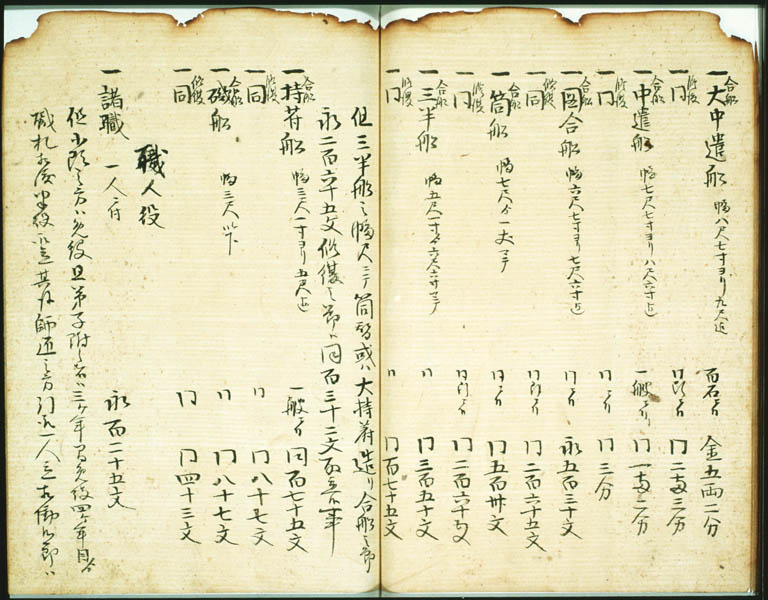 一 合船 大中遣船 幅八尺七寸ヨリ九尺迄 百石ニ付 金五両二分
一 修復 同 同断ニ付 同二両三分
一 合船 中遣船 幅七尺七寸ヨリ八尺六寸迄 一艘ニ付 同一両二分
一 修復 同 同ニ付 同三分
一 合船 図合船 幅六尺七寸ヨリ七尺六寸迄 同ニ付 永五百三十文
一 修復 同 同断ニ付 同二百六十五文
一 合船 筒船 幅七尺ヨリ一丈マテ 同ニ付 同五百卅文
一 修復 同 同断ニ付 同二百六十五文
一 合船 三半船 幅五尺一寸ヨリ六尺六寸マテ 同 同三百五十文
一 修復 同 同 同百七十五文
但三半船之幅尺ニテ筒船或ハ大持符造リ合船之節
永二百六十五文修復之節ハ同百三十二文取立候事
一 合船 持符船 幅三尺一寸ヨリ五尺迄 一艘ニ付 同百七十五文
一 修復 同 同 同八十七文
一 合船 磯船 幅三尺以下 同 同八十七文
一 修復 同 同 同四十三文
職人役
一 諸職 一人ニ付 永百二十五文
但小頭之方ハ免役且弟子附之者ハ三ケ年間免役四ケ年目ヨリ
鑑札相渡 其師匠之方 一人立相働候節ハ